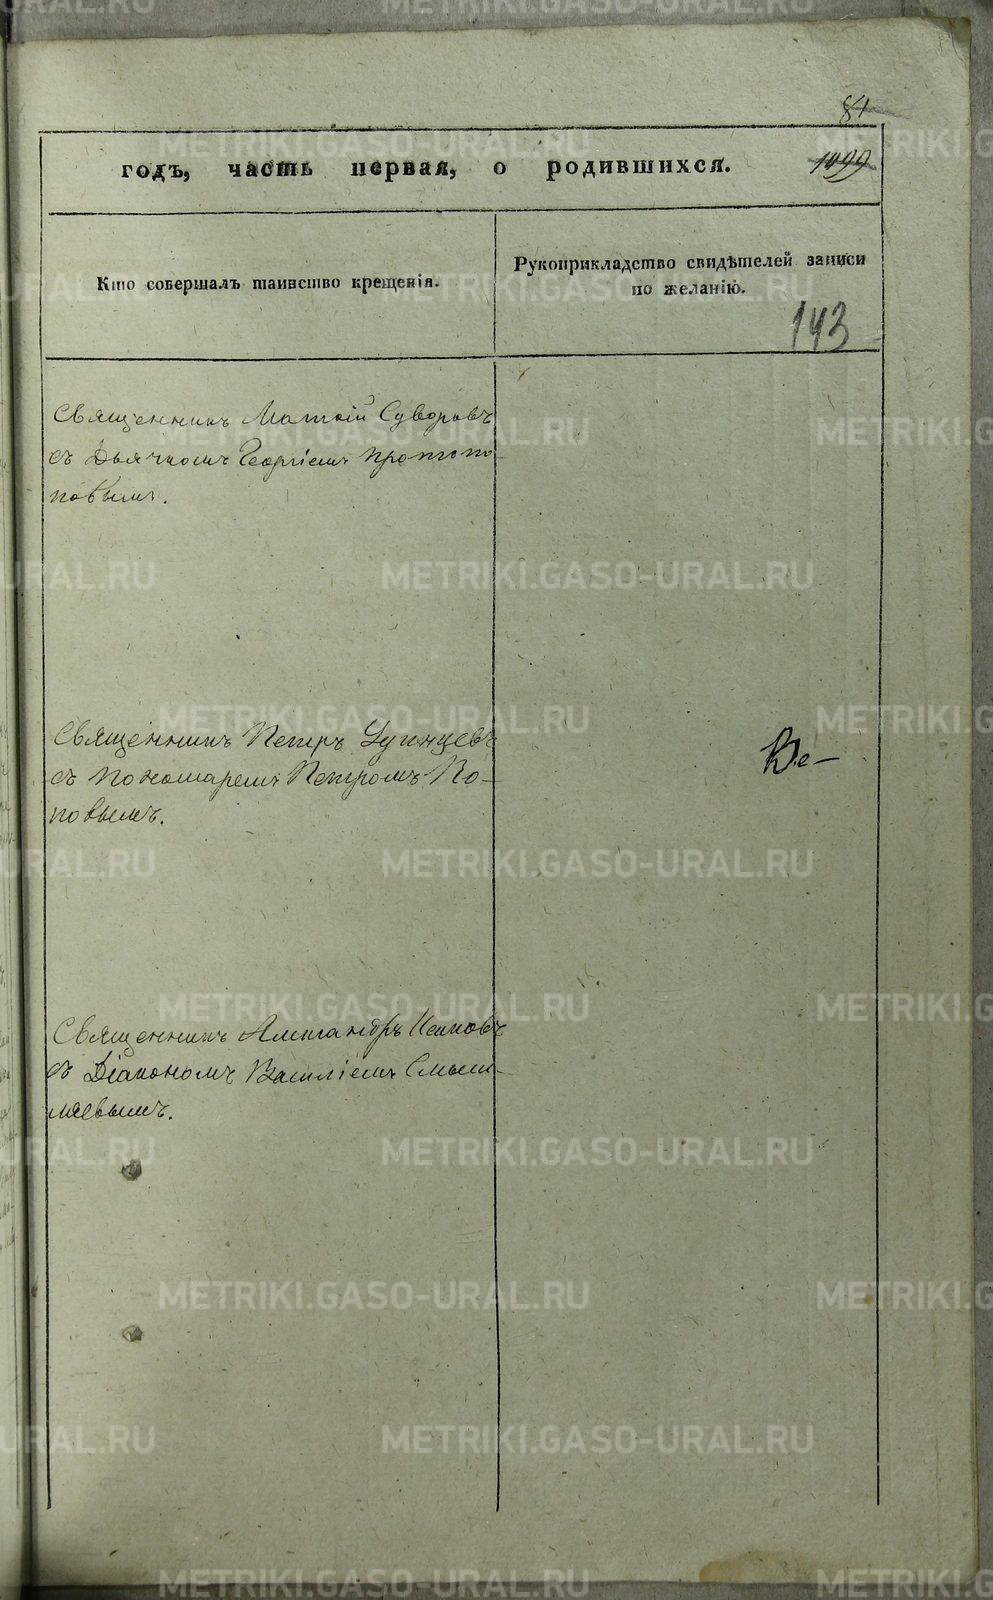 84
годъ, часть первая, о родившихся.
1099
Кто совершалъ таинство крещенія.
Рукоприкладство свидѣтелей записи
по желанію.
143
Священникъ Матѳій Суворовъ
съ Дьячкомъ Георгіемъ Протопо
повымъ.
Священникъ Петръ Удинцевъ
съ Пономаремъ Петромъ По-
повымъ.
Священникъ Александръ Иконниковъ
съ Діакономъ Василіемъ Смыш-
ляевымъ.
METRIKI.GASO-URAL.RU